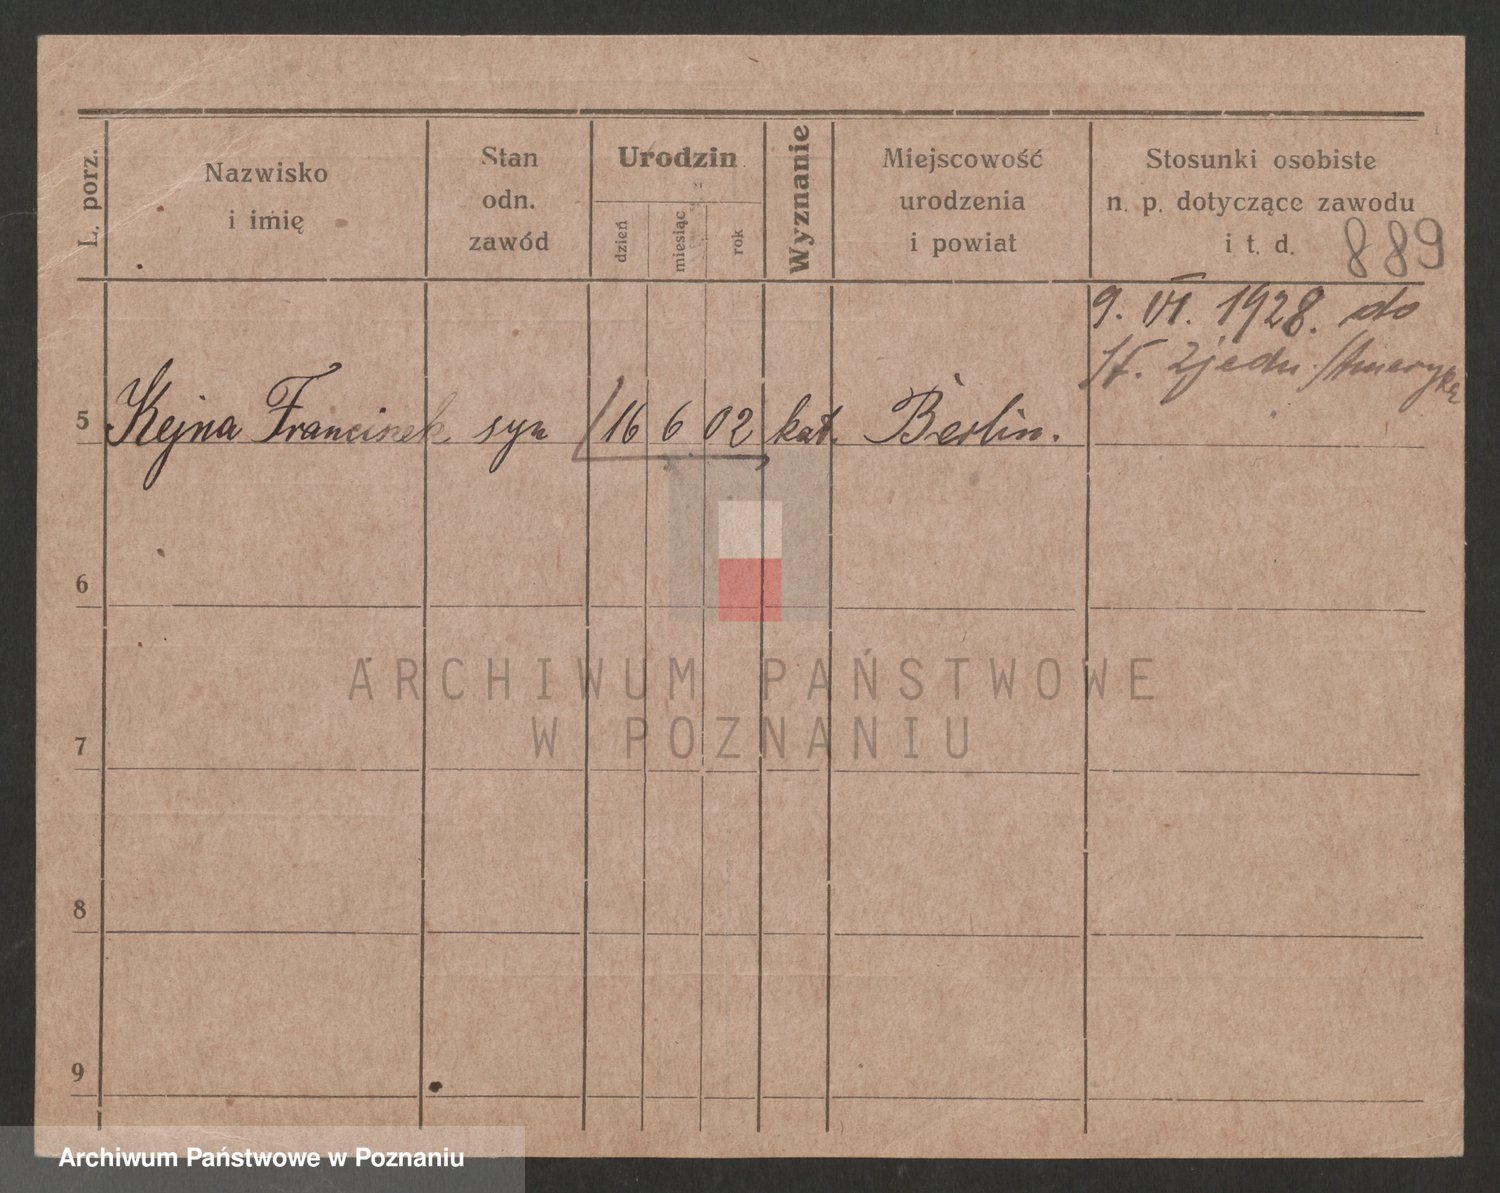 L. porz.
Nazwisko
i imię
Stan
odn.
zawód
Urodzin
dzień
miesiąc
rok
Wyznanie
Miejscowość
urodzenia
i powiat
Stosunki osobiste
n. p. dotyczące zawodu
i t. d.
889
9. VI. 1928. do
St. Zjedn. /Ameryke
5 Kejna Franciszek syn 16 6 02 kat. Berlin.
6
ARCHIWUM PAŃSTWOWE
W POZNANIU
7
8
9
Archiwum Państwowe w Poznaniu